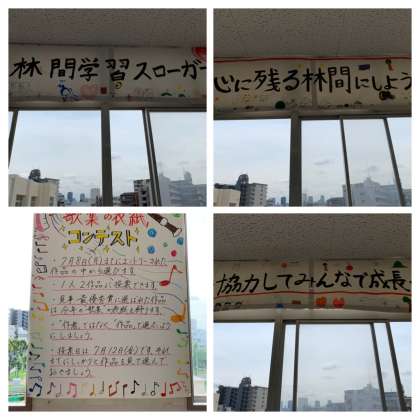 林間学習スローガ
心に残る林間にしよう
歌集の表紙
コンテスト
・7月8日(月)までにエントリーされた
作品の中から選びます。
・1人2作品に投票できます。
・見事、最優秀賞に選ばれた作品
は今年の歌集の表紙を飾ります。
・"作者"ではなく、"作品"で選ぶように
しましょう。
・投票日は7月12日(金)です。それ
までにしっかりと作品を見て選んで
おきましょう。
協力してみんなで成長